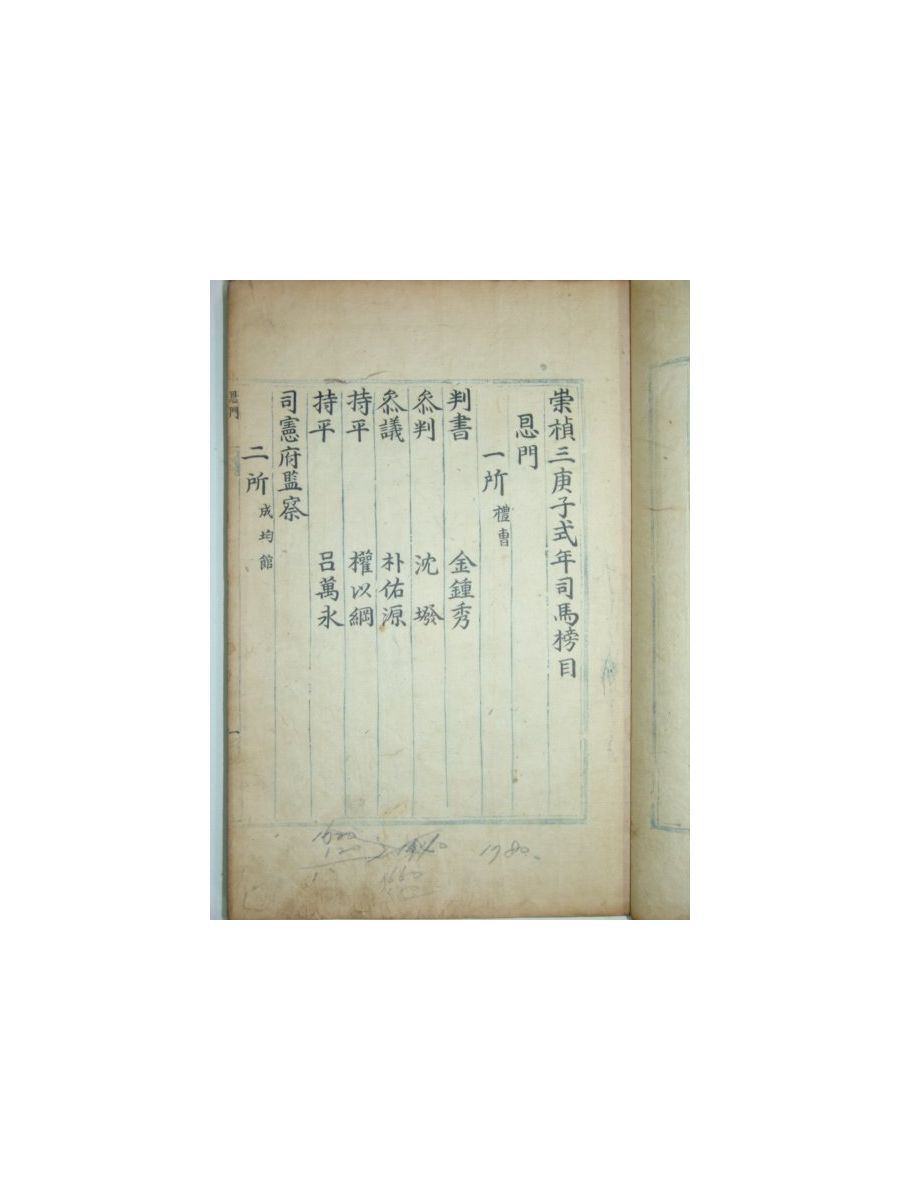 崇禎三庚子式年司馬榜目
恩門
一所 禮曹
判書 金鍾秀
叅判 沈墢
叅議 朴佑源
持平 權以綱
持平 呂萬永
司憲府監察
二所 成均館
恩門
一
1780.